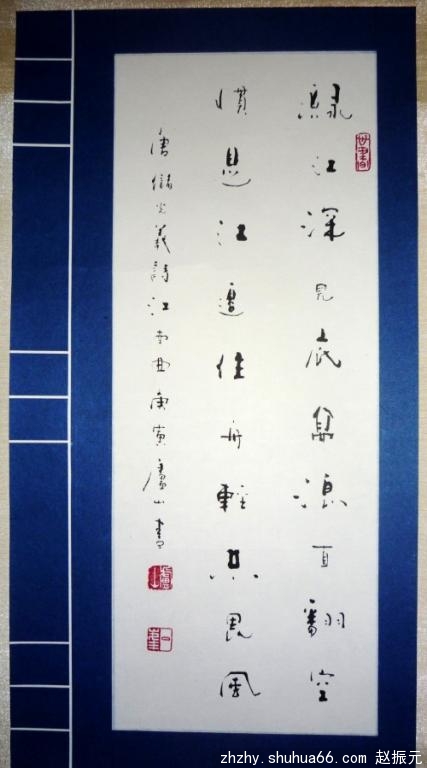 綠江深見底高浪直翻空
慣是江邊住舟輕不畏風
唐儲光義詩江南曲庚寅廬山書
zhzhy.shuhua66.com 赵振元